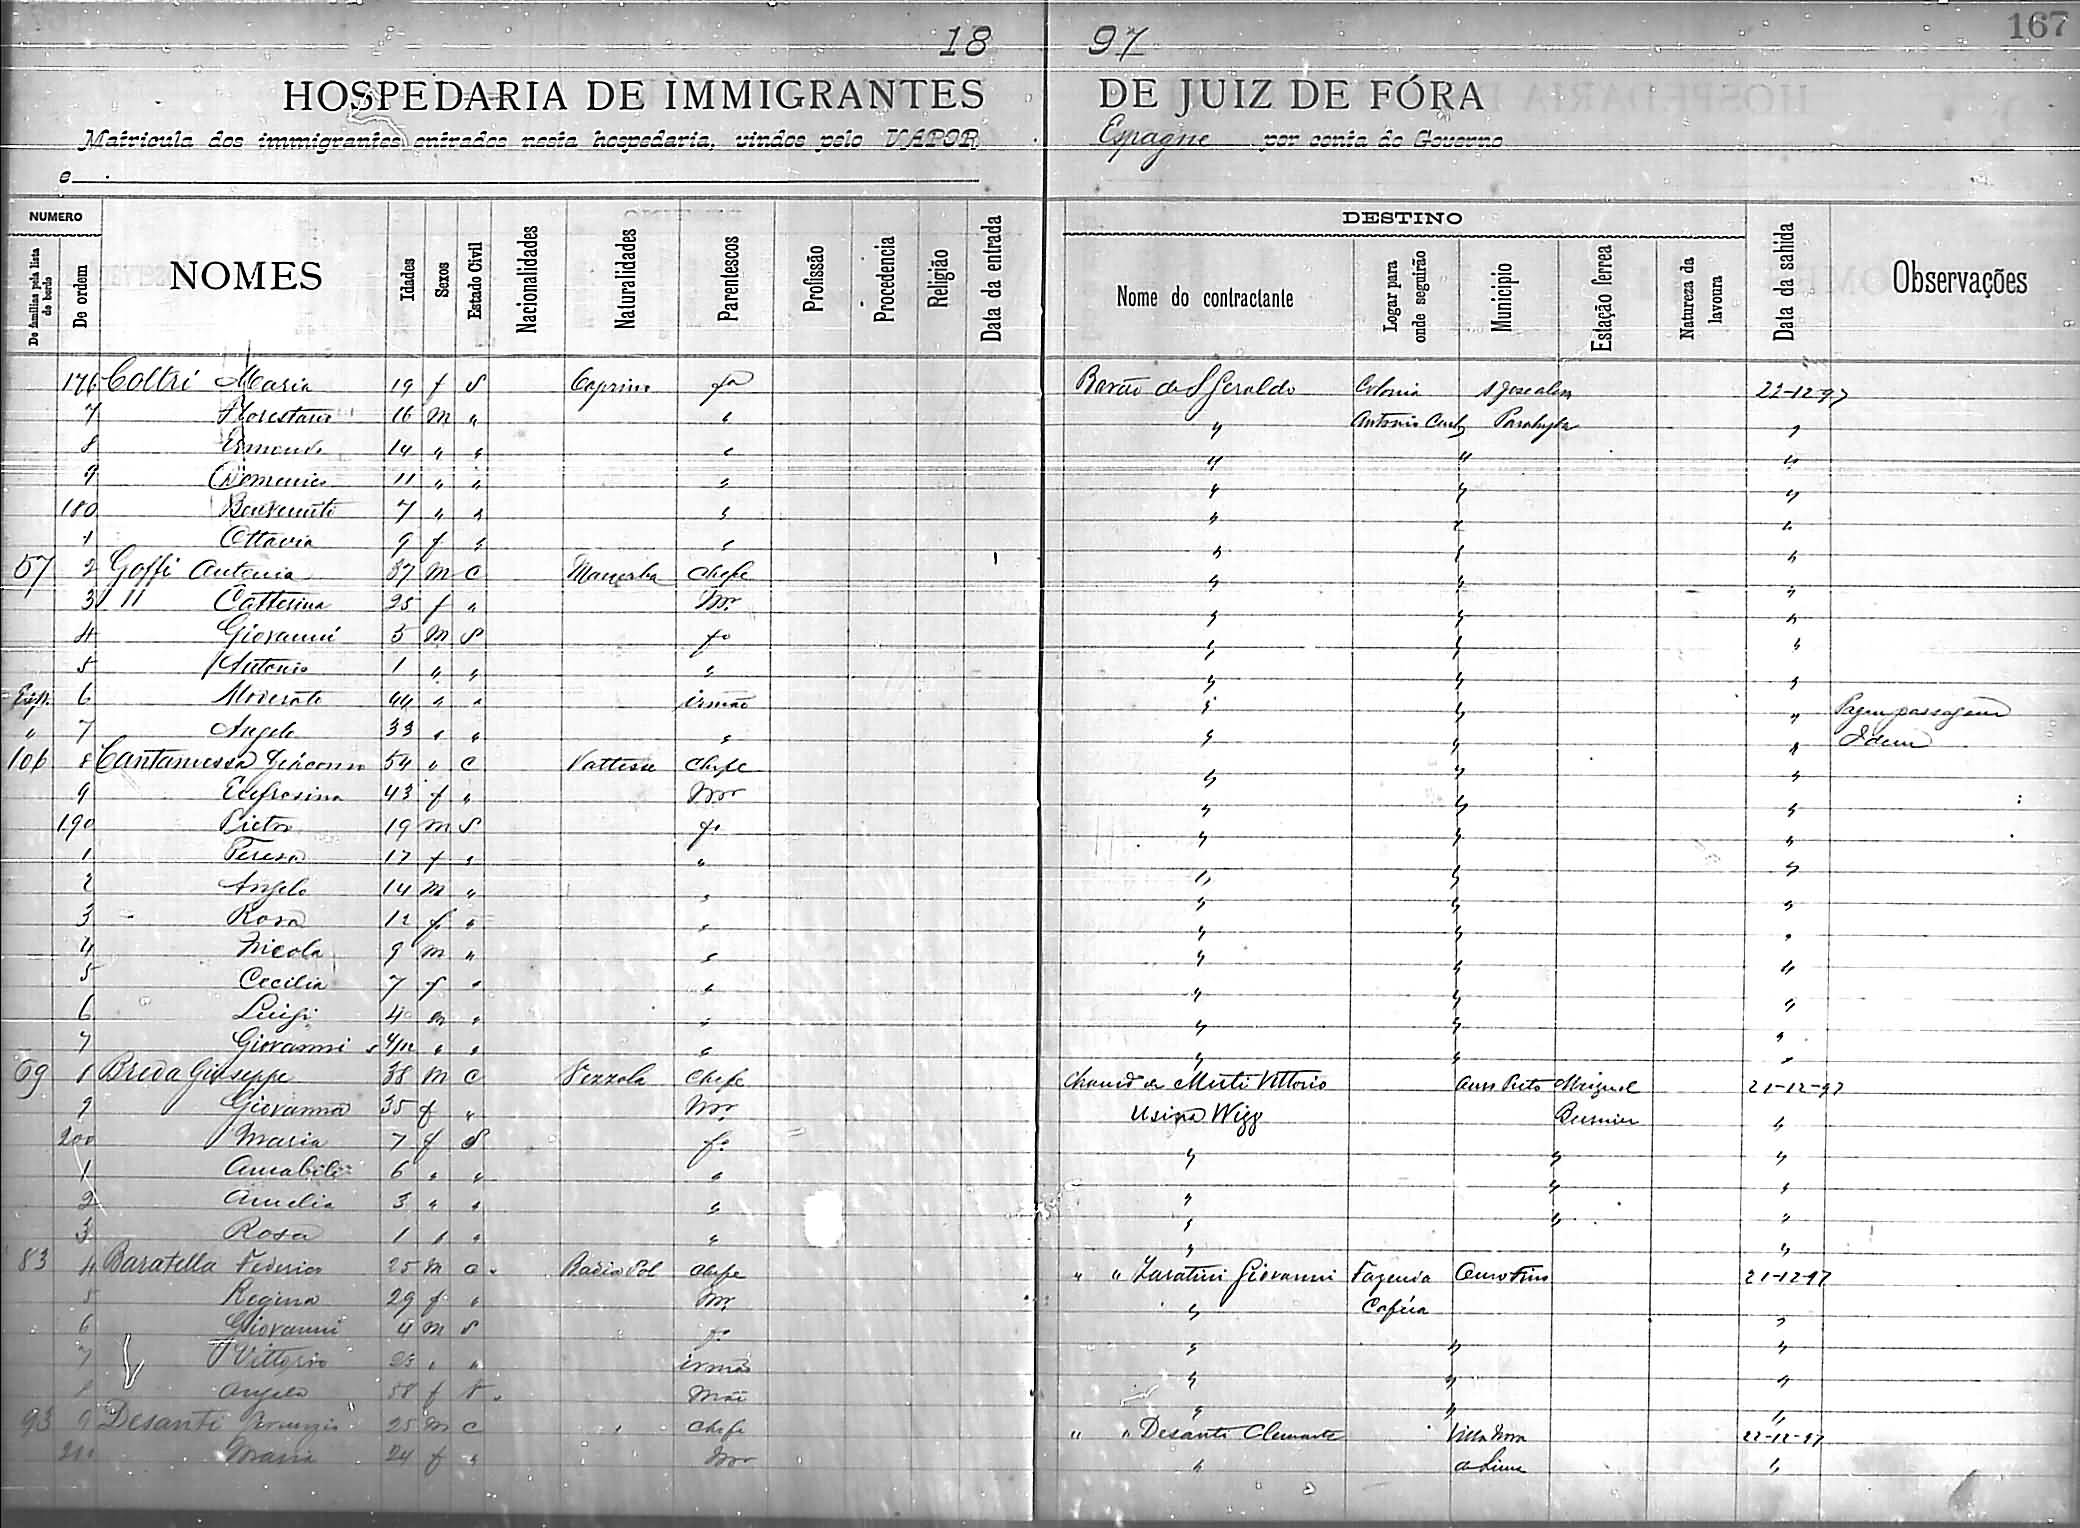 167
18 97
HOSPEDARIA DE IMMIGRANTES DE JUIZ DE FÓRA
Matricula dos immigrantes entrados nesta hospedaria, vindos pelo VAPOR Espagne por conta do Governo
e
NUMERO DESTINO
De familias pela lista de bordo De ordem NOMES Idades Sexos Estado Civil Nacionalidades Naturalidades Parentescos Profissão Procedencia Religião Data da entrada Nome do contractante Logar para onde seguirão Municipio Estação ferrea Natureza da lavoura Data da sahida Observações
176 Coltri Maria 19 f S Caprino fa Barão de S Geraldo Colonia S José alem 22-12-97
7 Florestano 16 m " " " Antonio Carlos Parahyba "
8 14 " " " " " "
9 Domenico 11 " " " " " "
180 Benvenuto 7 " " " " " "
1 Ottavia 9 f " " " " "
57 2 Goffi Antonio 37 m C Manerba Chefe " " "
3 " Catterina 25 f " Mer " " "
4 Giovanni 5 m S fo " " "
5 Antonio 1 " " " " " "
Esp. 6 Moderato 44 " " irmão " " " Pagou passagem
" 7 Angelo 33 " " " " " " Idem
106 8 Cantamessa Giacomo 54 " C Chefe " " "
9 Eufrosina 43 f " Mer " " "
190 Pietro 19 m S fo " " "
1 Teresa 17 f " " " " "
2 Angelo 14 m " " " " "
3 Rosa 12 f " " " " "
4 Nicola 9 m " " " " "
5 Cecilia 7 f " " " " "
6 Luigi 4 m " " " " "
7 Giovanni 4/12 " " " " " "
69 8 Breda Giuseppe 38 m C Vezzola Chefe Chamado de Miti Vittorio Ouro Preto Miguel 21-12-97
9 Giovanna 35 f " Mer Usina Wigg Burnier "
200 Maria 7 f S fa " " "
1 Amabile 6 " " " " " "
2 Amelia 3 " " " " " "
3 Rosa 1 " " " " "
83 4 Baratella Federico 25 m C Badia Pol Chefe " " Zaratini Giovanni Fazenda Ouro Fino 21-12-97
5 Regina 29 f " Mer " "
6 Giovanni 4 m S fo " " "
7 Vittorio 23 " " irmão " " "
8 Angela 58 f V Mãe " " "
93 9 Desanti 25 m C " Chefe " " Desanti Clemente Villa Nova 22-12-97
210 Maria 24 f " Mer " de Lima "